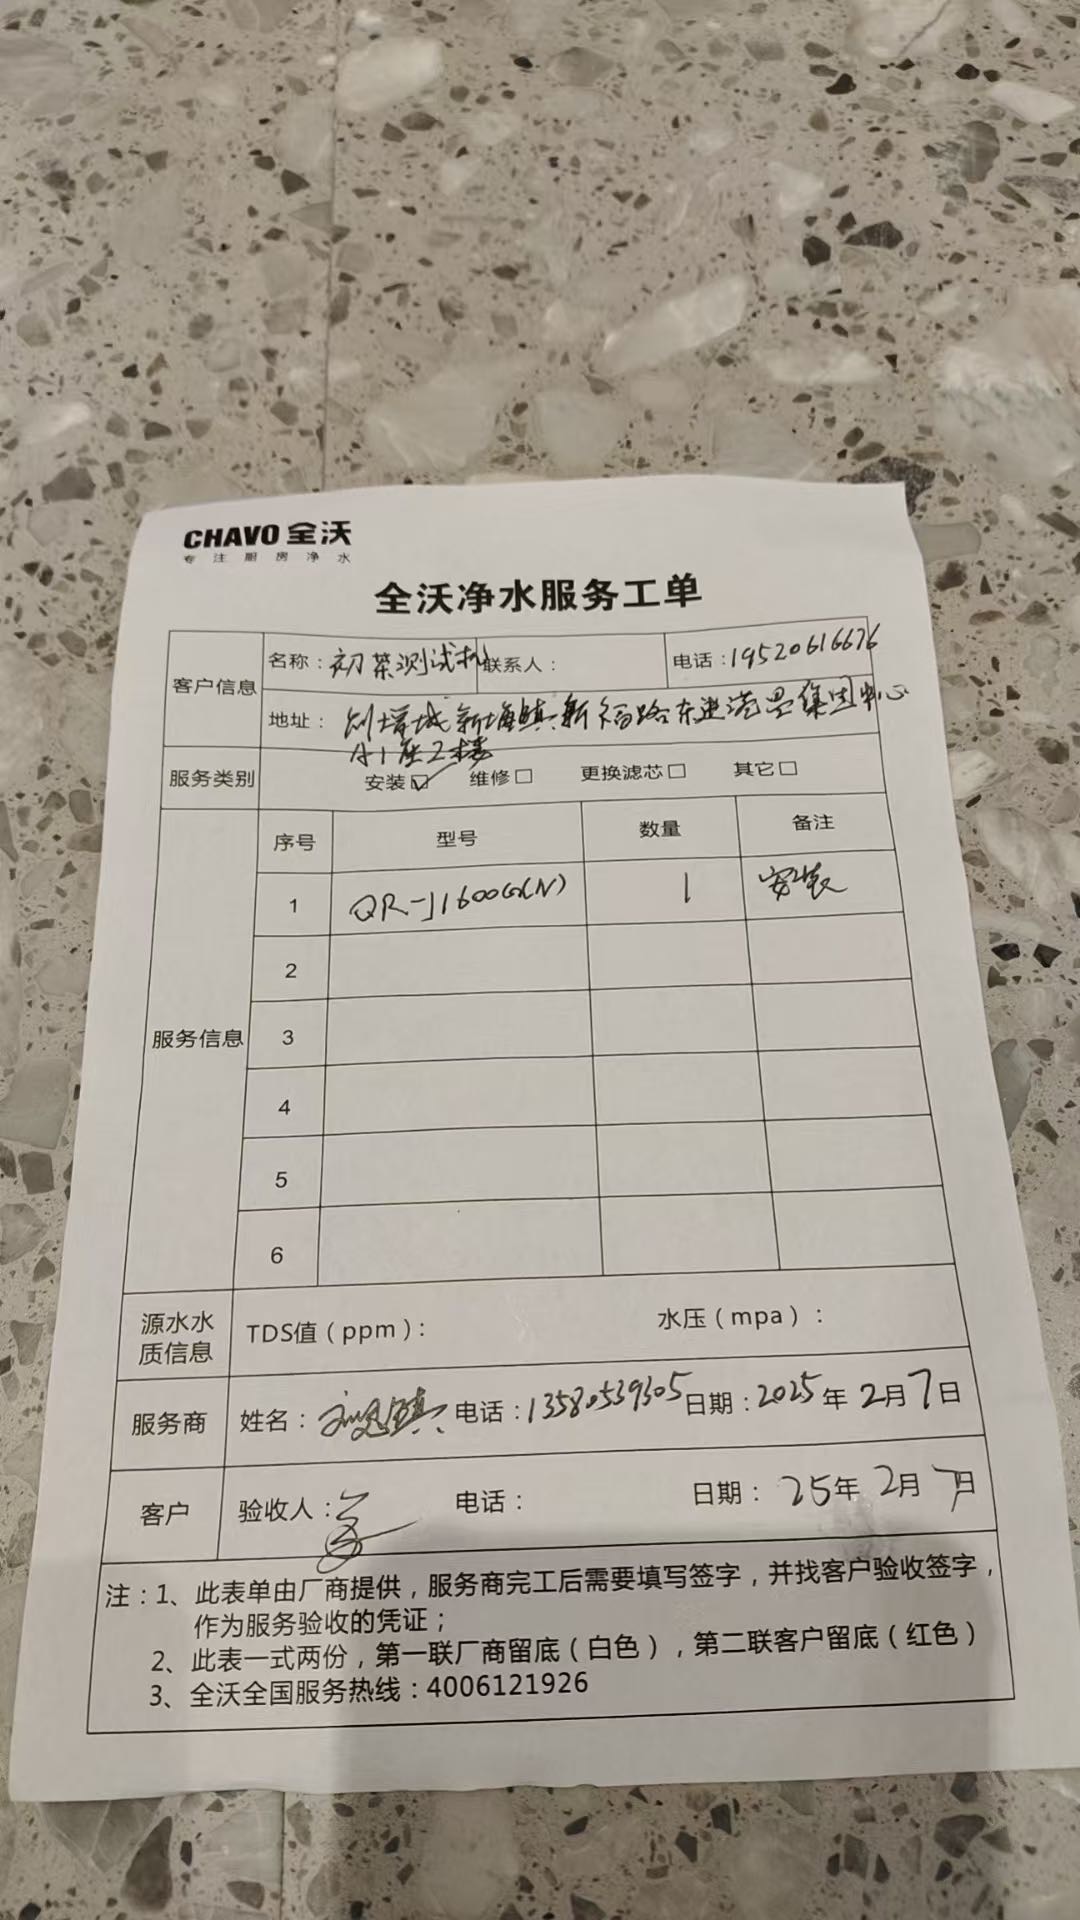 CHAVO 全沃
专注厨房净水
全沃净水服务工单
客户信息
名称：初茶测试机 联系人： 电话：19520616676
地址：增城新塘镇新福路东进港思集团中心
A1座2楼
服务类别 安装☑ 维修□ 更换滤芯□ 其它□
服务信息
序号 型号 数量 备注
1 QR-J1600G(N) 1 安装
2
3
4
5
6
源水水质信息 TDS值（ppm）： 水压（mpa）：
服务商 姓名： 电话：13580539305 日期：2025年2月7日
客户 验收人： 电话： 日期：25年2月7日
注：1、此表单由厂商提供，服务商完工后需要填写签字，并找客户验收签字，
作为服务验收的凭证；
2、此表一式两份，第一联厂商留底（白色），第二联客户留底（红色）
3、全沃全国服务热线：4006121926